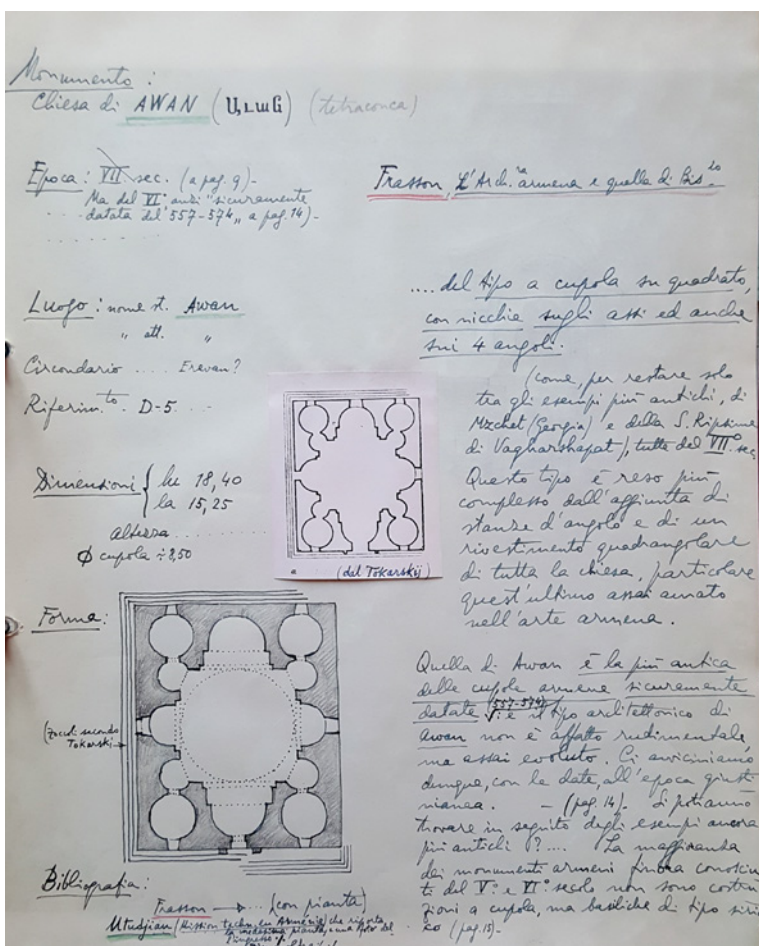 Monumento:
Chiesa di AWAN (Աւան) (tetraconca)
Epoca: VII sec. (a pag. 9)-
Ma del VI° anzi "sicuramente
datata del 557-574„ a pag. 14)-
Luogo: nome st. Awan
" att. "
Circondario .... Erevan?
Riferim.to. D-5. ...
Dimensioni { lu 18,40
la 15,25
altezza ..........
Ø cupola ÷ 8,50
Forma:
(zoccoli secondo
Tokarski
Bibliografia:
Frasson → ... (con pianta)
Utudjian (Mission techn. en Arménie) che riporta
la medesima pianta, e una
a (dal Tokarskij)
Frasson, L'Arch.ra armena e quella di Bis.io
.... del tipo a cupola su quadrato,
con nicchie sugli assi ed anche
sui 4 angoli.
(come, per restare solo
tra gli esempi più antichi, di
Mzchet (Georgia) e della S. Ripsime
di Vagharshapat), tutte del VII° sec.
Questo tipo è reso più
complesso dall'aggiunta di
stanze d'angolo e di un
rivestimento quadrangolare
di tutta la chiesa, particolare
quest'ultimo assai amato
nell'arte armena.
Quella di Awan è la più antica
delle cupole armene sicuramente
datate (557-574) e il tipo architettonico di
Awan non è affatto rudimentale,
ma assai evoluto. Ci avviciniamo
dunque, con le date, all'epoca giusti
nianea. - (pag. 14). Si potranno
trovare in seguito degli esempi ancora
più antichi?.... La maggioranza
dei monumenti armeni finora conosciu
ti del V° e VI° secolo non sono costru
zioni a cupola, ma basiliche di tipo siri
aco (pag. 15)-